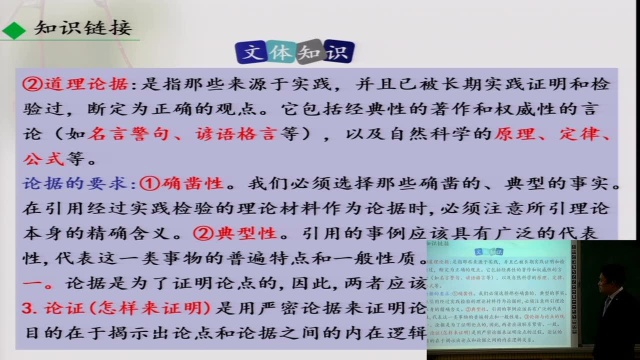 知识链接
文体知识
②道理论据:是指那些来源于实践，并且已被长期实践证明和检
验过，断定为正确的观点。它包括经典性的著作和权威性的言
论（如名言警句、谚语格言等），以及自然科学的原理、定律、
公式等。
论据的要求:①确凿性。我们必须选择那些确凿的、典型的事实。
在引用经过实践检验的理论材料作为论据时,必须注意所引理论
本身的精确含义。②典型性。引用的事例应该具有广泛的代表
性,代表这一类事物的普遍特点和一般性质。
一。论据是为了证明论点的,因此,两者应该
3.论证(怎样来证明)是用严密论据来证明论
目的在于揭示出论点和论据之间的内在逻辑